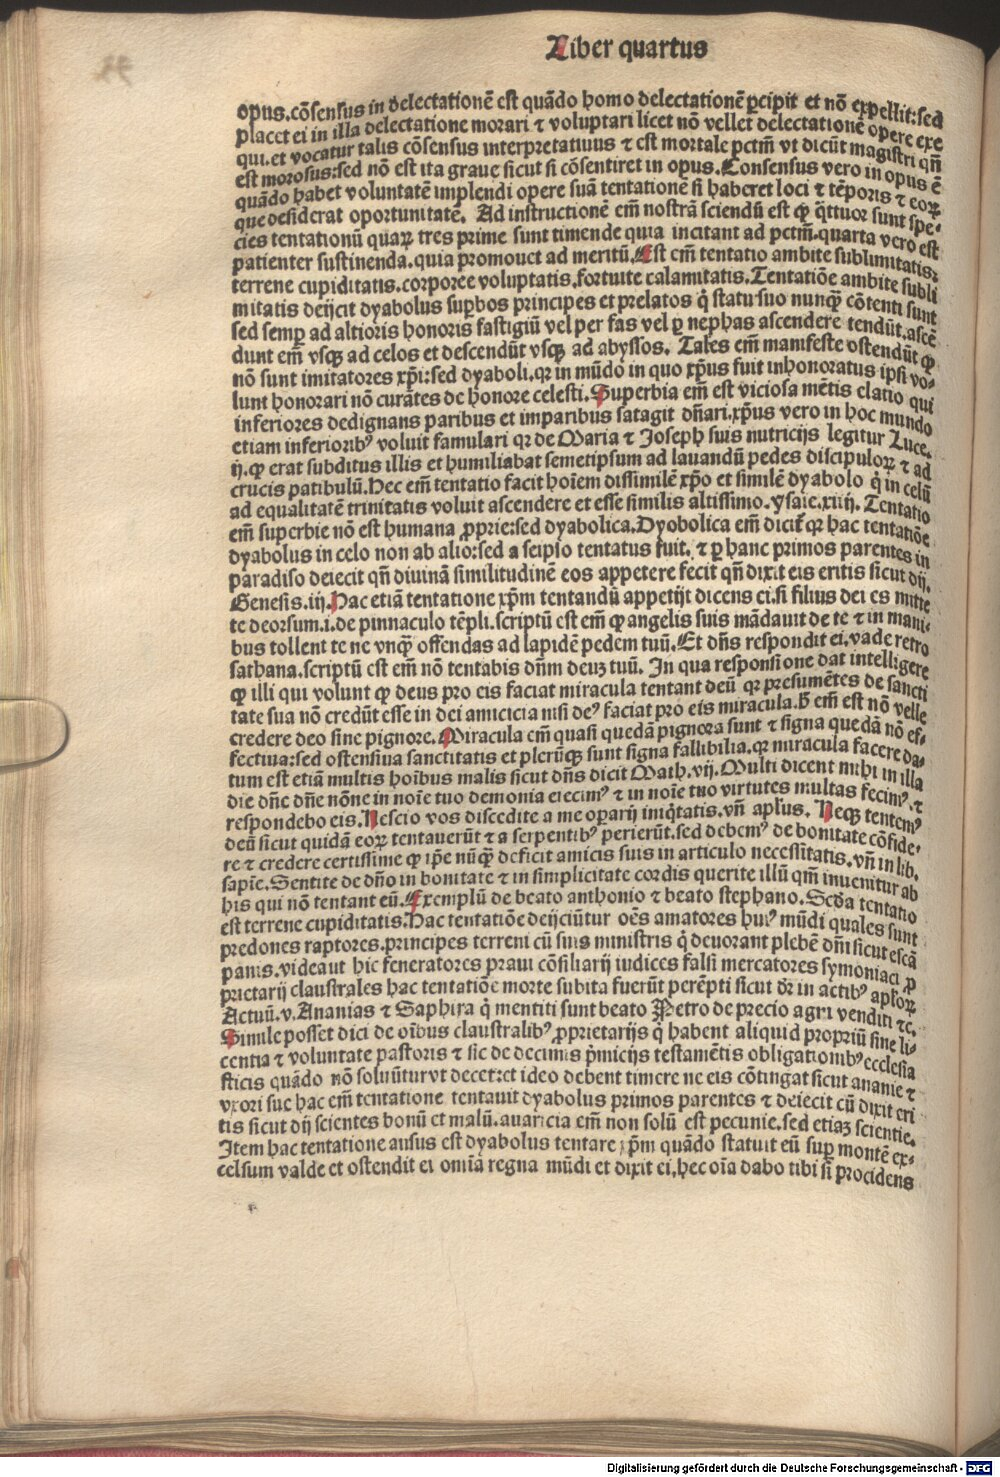 Liber quartus
opus.cōsensus in delectationē est quādo homo delectationē ꝑcipit et nō expellit:sed
placet ei in illa delectatione morari ⁊ voluptari licet nō vellet delectationē opere exe
qui.et vocatur talis cōsensus interpretatiuus ⁊ est mortale pctm̄ vt dicūt magistri qn̄
est morosus:sed nō est ita graue sicut si cōsentiret in opus.Consensus vero in opus ē
quādo habet voluntatē implendi opere suā tentationē si haberet loci ⁊ tēporis ⁊ eoꝝ
que desiderat oportunitatē. Ad instructionē em̄ nostrā sciendū est ꝙ q̄ttuor sunt spe-
cies tentationū quaꝝ tres prime sunt timende quia incitant ad pctm̄.quarta vero est
patienter sustinenda.quia promouet ad meritū.Est em̄ tentatio ambite sublimitatis:
terrene cupiditatis.corporee voluptatis.fortuite calamitatis.Tentatiōe ambite subli
mitatis deijcit dyabolus suꝑbos principes et prelatos q̇ statu suo nunqͣ cōtenti sunt
sed semꝑ ad altioris honoris fastigiū vel per fas vel ꝑ nephas ascendere tendūt.ascē
dunt em̄ vsqꝫ ad celos et descendūt vsqꝫ ad abyssos. Tales em̄ manifeste ostendūt ꝙ
nō sunt imitatores xp̄i:sed dyaboli.qꝛ in mūdo in quo xp̄us fuit inhonoratus ipsi vo-
lunt honorari nō curātes de honore celesti.Superbia em̄ est viciosa mētis elatio qui
inferiores dedignans paribus et imparibus satagit dn̄ari.xp̄us vero in hoc mundo
etiam inferioribꝰ voluit famulari qꝛ de Maria ⁊ Joseph suis nutricijs legitur Luce.
ij.ꝙ erat subditus illis et humiliabat semetipsum ad lauandū pedes discipuloꝝ ⁊ ad
crucis patibulū.Hec em̄ tentatio facit hoiem̄ dissimilē xp̄o et similē dyabolo q̇ in celū
ad equalitatē trinitatis voluit ascendere et esse similis altissimo.ysaie.xiiij. Tentatio
em̄ superbie nō est humana ꝓprie:sed dyabolica.Dyobolica em̄ dicit̄ qꝛ hac tentatiōe
dyabolus in celo non ab alio:sed a seipso tentatus fuit. ⁊ ꝑ hanc primos parentes in
paradiso deiecit qn̄ diuinā similitudinē eos appetere fecit qn̄ dixit eis eritis sicut dij.
Genesis.iij.Hac etiā tentatione xp̄m tentandū appetijt dicens ei.si filius dei es mitte
te deorsum.i.de pinnaculo tēpli.scriptū est em̄ ꝙ angelis suis mādauit de te ⁊ in mani-
bus tollent te ne vnqͣ offendas ad lapidē pedem tuū.Et dn̄s respondit ei.vade retro
sathana.scriptū est em̄ nō tentabis dn̄m deuꝫ tuū. In qua responsione dat intelligere
ꝙ illi qui volunt ꝙ deus pro eis faciat miracula tentant deū qꝛ presumētes de sancti
tate sua nō credūt esse in dei amicicia nisi deꝰ faciat pro eis miracula.h̄ em̄ est nō velle
credere deo sine pignore.Miracula em̄ quasi quedā pignora sunt ⁊ signa quedā nō ef-
fectiua:sed ostensiua sanctitatis et plerūqꝫ sunt signa fallibilia.qꝛ miracula facere da-
tum est etiā multis hoībus malis sicut dn̄s dicit Math.vij.Multi dicent mihi in illa
die dn̄e dn̄e nōne in noīe tuo demonia eiecimꝰ ⁊ in noīe tuo virtutes multas fecimꝰ.⁊
respondebo eis.Nescio vos discedite a me oꝑarij iniq̇tatis.vn̄ apl̄us. Neqꝫ tentemꝰ
deū sicut quidā eoꝝ tentauerūt ⁊ a serpentibꝰ perierūt.sed debemꝰ de bonitate cōfide-
re ⁊ credere certissime ꝙ ip̄e nūqͣ deficit amicis suis in articulo necessitatis.vn̄ in lib.
sapīe.Sentite de dn̄o in bonitate ⁊ in simplicitate cordis querite illū qm̄ inuenitur ab
his qui nō tentant eū.Exemplū de beato anthonio ⁊ beato stephano. Scd̄a tentatio
est terrene cupiditatis.Hac tentatiōe deijciūtur oēs amatores huiꝰ mūdi quales sunt
predones raptores.principes terreni cū suis ministris q̇ deuorant plebē dn̄i sicut escā
panis.videant hic feneratores praui cōsiliarij iudices falsi mercatores symoniaci ꝓ
prietarij claustrales hac tentatiōe morte subita fuerūt perēpti sicut dr̄ in actibꝰ apl̄oꝝ
Actuū.v.Ananias ⁊ Saphira q̇ mentiti sunt beato Petro de precio agri venditi ⁊c.
Simile posset dici de oībus claustralibꝰ ꝓprietarijs q̇ habent aliquid propriū sine li-
centia ⁊ voluntate pastoris ⁊ sic de decimis p̄micijs testamētis obligationibꝰ ecclesia
sticis quādo nō soluūtur vt decet:et ideo debent timere ne eis cōtingat sicut ananie ⁊
vxori sue hac em̄ tentatione tentauit dyabolus primos parentes ⁊ deiecit cū dixit eri
tis sicut dij scientes bonū et malū.auaricia em̄ non solū est pecunie.sed etiaꝫ scientie.
Item hac tentatione ausus est dyabolus tentare xp̄m quādo statuit eū suꝑ montē ex-
celsum valde et ostendit ei omīa regna mūdi et dixit ei.hec oīa dabo tibi si procidens
Digitalisierung gefördert durch die Deutsche Forschungsgemeinschaft - DFG